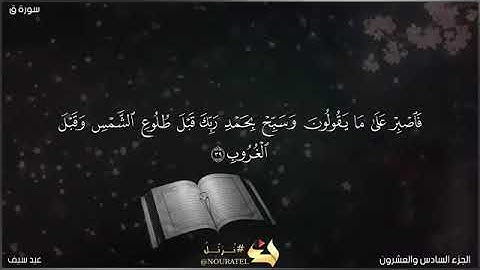 سورة ق
فَٱصْبِرْ عَلَىٰ مَا يَقُولُونَ وَسَبِّحْ بِحَمْدِ رَبِّكَ قَبْلَ طُلُوعِ ٱلشَّمْسِ وَقَبْلَ
ٱلْغُرُوبِ ٣٩
#نُرَتِّلُ
@NOURATEL
الجزء السادس والعشرون
عبد سيف